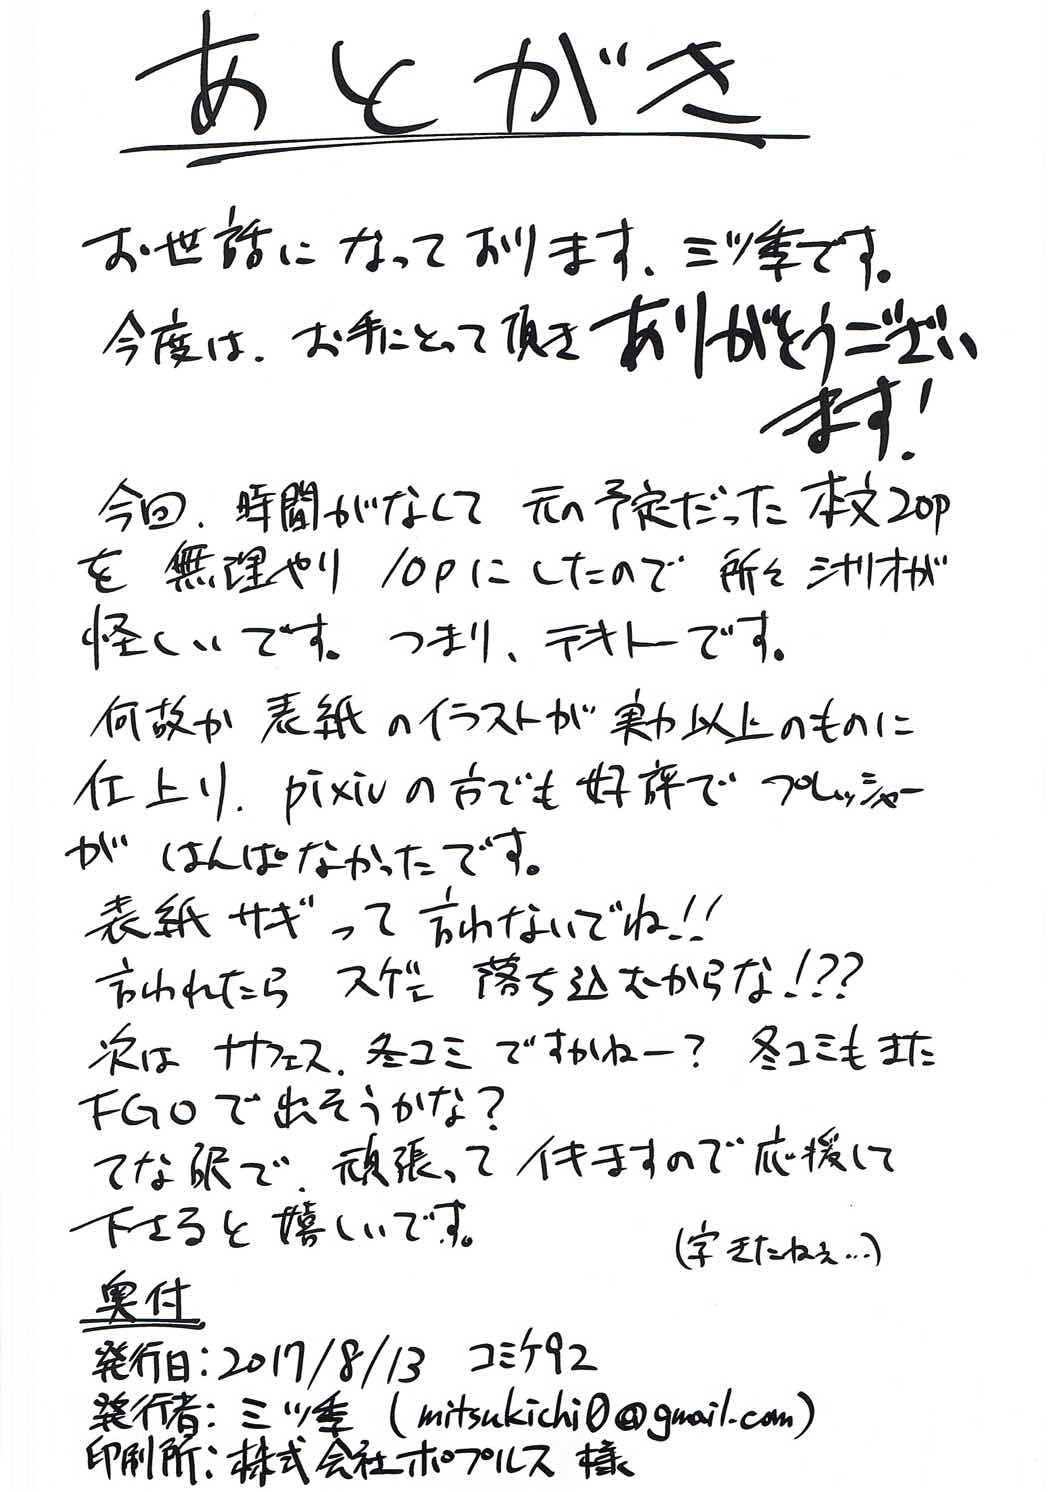 あとがき
お世話になっております、ミツ季です。
今度は、お手にとって頂きありがとうござい
ます!
今回、時間がなくて元の予定だった本文20p
を無理やり10pにしたので所々シナリオが
怪しいです。つまり、テキトーです。
何故か表紙のイラストが実力以上のものに
仕上り、pixivの方でも好評でプレッシャー
がはんぱなかったです。
表紙サギって言わないでね!!
言われたらスゲェ落ち込むからな!??
次はサナフェス、冬コミですかねー?冬コミもまた
FGOで出そうかな?
てな訳で、頑張ってイキますので応援して
下さると嬉しいです。
(字きたねぇ...)
奥付
発行日:2017/8/13 コミケ92
発行者:ミツ季 (mitsukichi0@gmail.com)
印刷所:株式会社ポプルス様